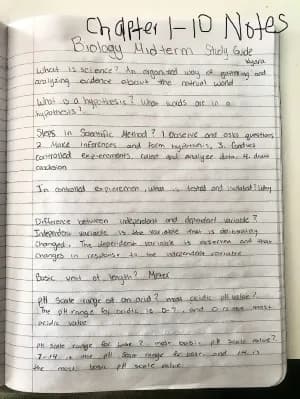 Chapter 1-10 Notes
Biology Midterm Study Guide
What is science? An organized way of gathering and
analyzing evidence about the natrual world
What is a hypothesis? What words are in a
hypothesis?
Steps in Scientific Method? 1. Observe and asks questions
2. Make inferences and form hypothesis, 3. Conduct
controlled expierements, collect and analyze data 4. draw
conclusion
In controlled expieremen, what is tested and isolated? Why
Difference between independent and dependent variable?
Independent variable is the variable that is deliberatley
changed. The dependent variable is observed and that
changes in response to the independent variable
Basic unit of length? Meter
pH scale range of an acid? most acidic pH value?
The pH range for acidic is 0-7, and 0 is the most
acidic value
pH scale range for base? most basic pH scale value?
7-14 is the pH scale range for base and 14 is
the most basic pH scale value.